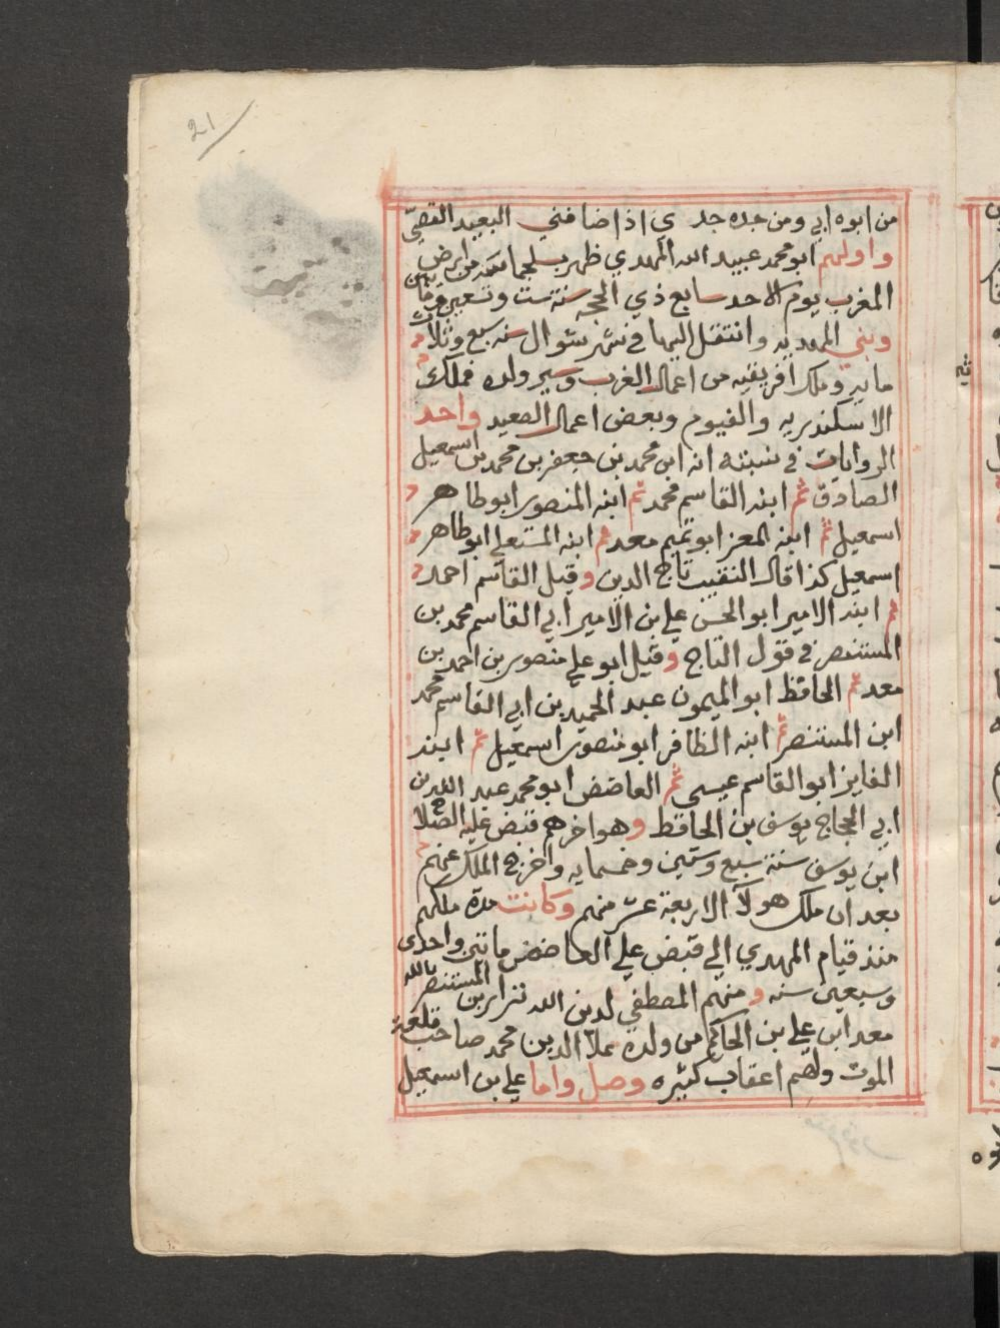 21
من ابوه ابي ومن جده جدي اذا ضامني البعيد القصي
واولهم ابو محمد عبيد الله المهدي ظهر بسلجماسه من ارض
المغرب يوم الاحد سابع ذي الحجه سنة ست وتسعين ومايتين
وبني المهديه وانتقل اليها في شهر شوال سنه سبع وثلاث
مايه وملك افريقيه من اعمال الغرب وسير ولده فملك
الاسكندريه والفيوم وبعض اعمال الصعيد واحد
الروايات في نسبته انه ابن محمد بن جعفر بن محمد بن اسمعيل
الصادق ثم ابنه القاسم محمد ثم ابنه المنصور ابو طاهر
اسمعيل ثم ابنه المعز ابو تميم معد ثم ابنه المستعلي ابو طاهر
اسمعيل كذا قال النقيب تاج الدين وقيل القاسم احمد
ثم ابنه الامير ابو الحسن علي بن الامير ابي القاسم محمد بن
المستنصر في قول التاج وقيل ابو علي منصور بن احمد بن
معد ثم الحافظ ابو الميمون عبد الحميد بن ابي القاسم محمد
ابن المستنصر ثم ابنه الظافر ابو منصور اسمعيل ثم ابنه
الفايز ابو القاسم عيسى ثم العاضض ابو محمد عبد الله بن
ابي الحجاج يوسف بن الحافظ وهو اخرهم قبض عليه الصلاح
ابن يوسف سنة سبع وستين وخمسمايه واخرج الملك عنهم
بعد ان ملك هولآ الاربعة عشر منهم وكانت مدة ملكهم
منذ قيام المهدي الي قبض علي العاضض ماتين واحدى
وسبعين سنه ومنهم المصطفي لدين الله نزار بن المستنصر بالله
معد ابن علي بن الحاكم من ولده علا الدين محمد صاحب قلعة
الموت ولهم اعقاب كثيره وصل واما علي بن اسمعيل